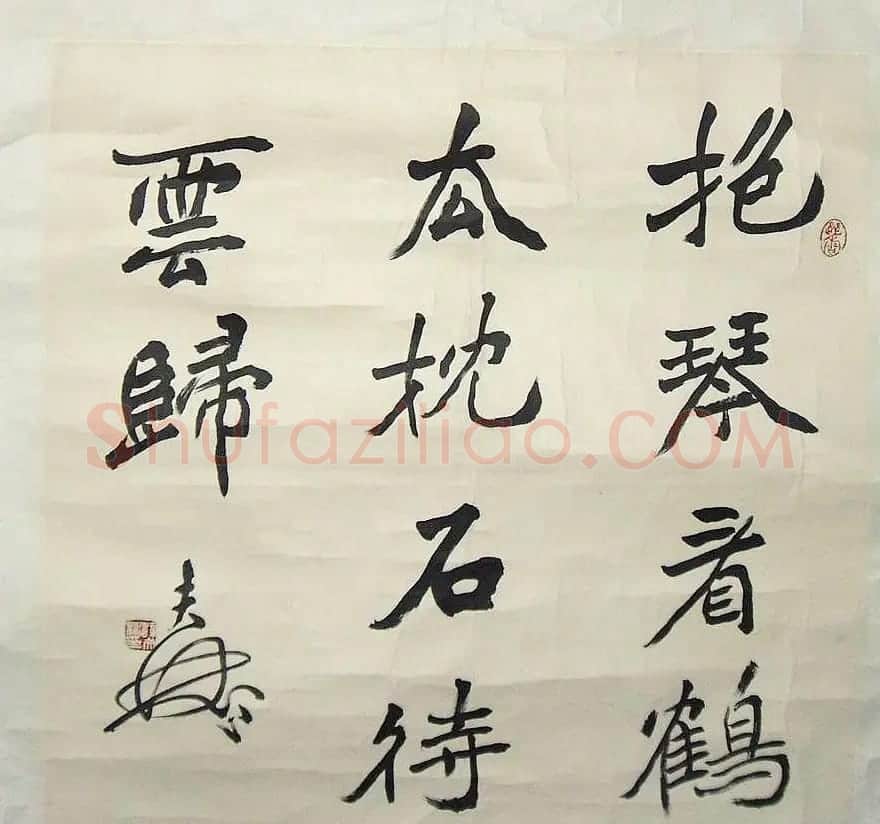 抱琴看鶴
去枕石待
雲歸
Shufaziliao.COM